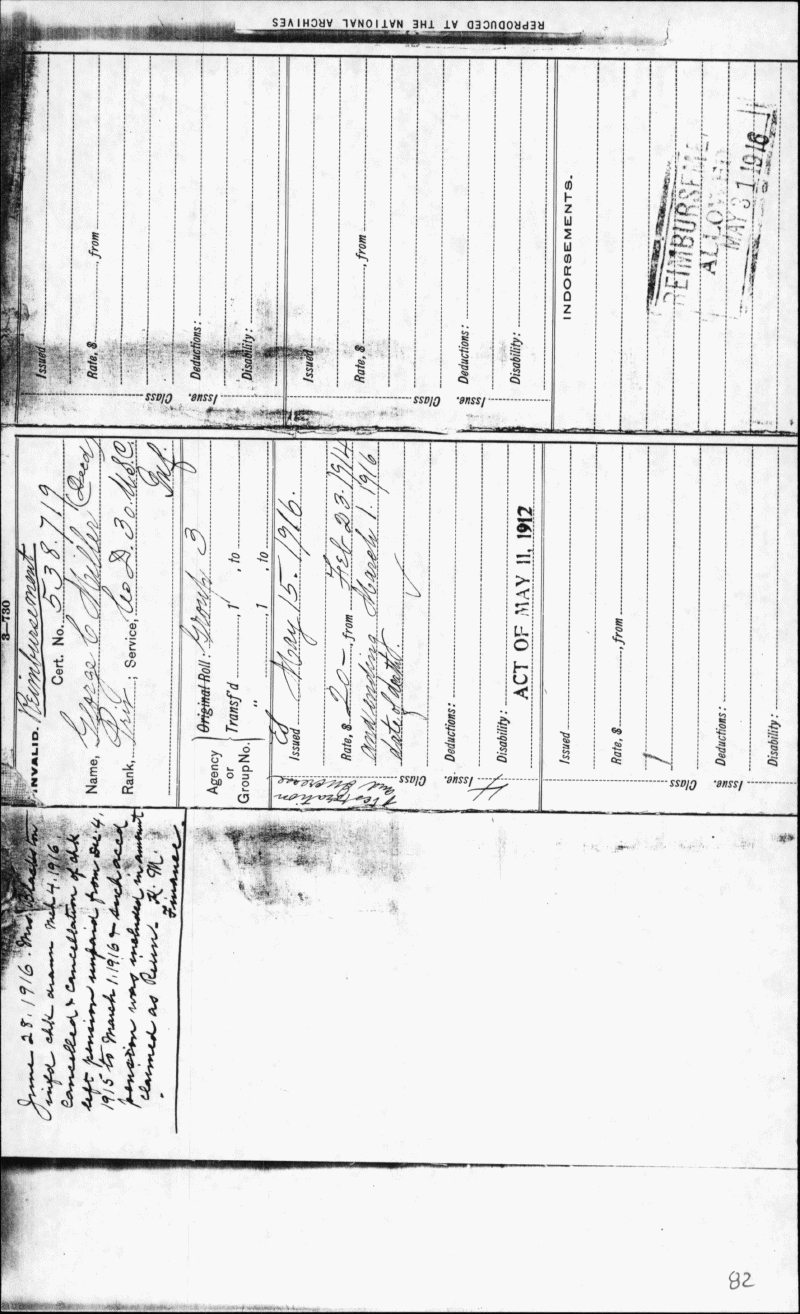 REPRODUCED AT THE NATIONAL ARCHIVES
3—730
INVALID. Reimbursement
Cert. No. 538.719
Name, George C (Decd)
Rank, Priv; Service, Co D. 30. Mo S C
Inf.
Agency or Group No. { Original Roll: Group 3
Transf'd , 1 , to
" , 1 , to
Issued May 15. 1916.
Rate, $ 20— from Feb 23. 1914
and ending March 1. 1916
date of death.
Deductions:
Disability:
ACT OF MAY 11, 1912
Class Restoration and Increase
Issue.
Issued
Rate, $ , from
Deductions:
Disability:
Class
Issue.
Issued
Rate, $ , from
Deductions:
Disability:
Class
Issue.
Issued
Rate, $ , from
Deductions:
Disability:
Class
Issue.
INDORSEMENTS.
REIMBURSEME
ALLOWED
MAY 31 1916
June 28, 1916. Mrs
infd chk drawn Mch 4, 1916
cancelled & cancellation of chk
left pension unpaid from Dec. 4,
1915 to March 1, 1916 & such accd
pension was included in amount
claimed as Reim. K. M.
Finance.
82